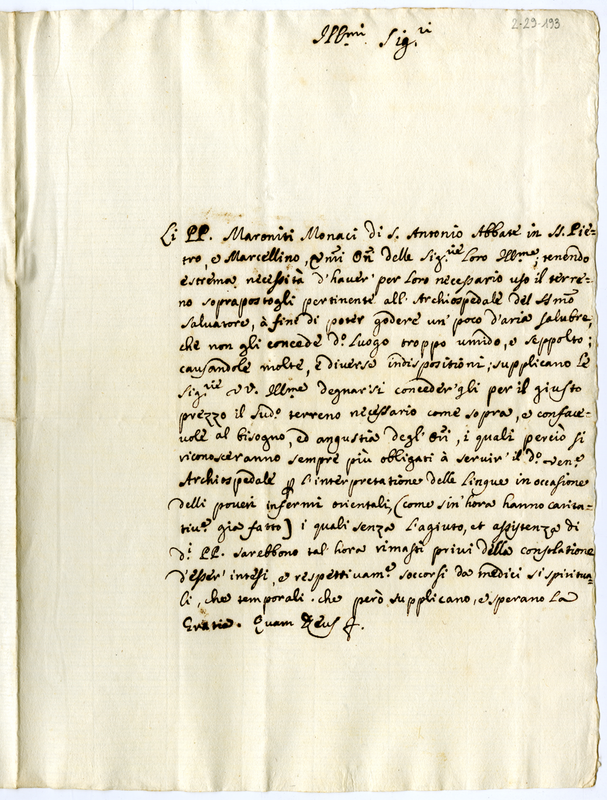 2-29-193
Ill.mi Sig.ri
Li PP. Maroniti Monaci di S. Antonio Abbate in SS. Pie-
tro, e Marcellino, Or̃i delle Sig.rie Loro Ill.me, tenendo
estrema necessità d'haver' per loro necessario uso il terre-
no soprapostogli pertinente all'Archiospedale del SSmo
Salvatore, à fine di poter godere un' poco d'aria salubre,
che non gli concede d.o Luogo troppo umido, e seppolto;
causandole molte, e diverse indispositioni; supplicano le
Sig.rie VV. Ill.me degnarsi conceder'gli per il giusto
prezzo il sud.o terreno necessario come sopra, e conface-
vole al bisogno, ed angustia degl'Or̃i, i quali perciò si
riconosceranno sempre più obligati à servir' il d.o Ven.e
Archiospedale p l'interpretatione delle Lingue in occasione
delli poveri infermi orientali, (come sin'hora hanno carita-
tiv.e già fatto) i quali senza l'agiuto, et assistenza di
d.i PP. sarebbono tal'hora rimasti privi della consolatione
d'esser' intesi, e respettivam.e soccorsi da medici sì spiritua-
li, che temporali. che però supplicano, e sperano la
Gratia. Quam Deus